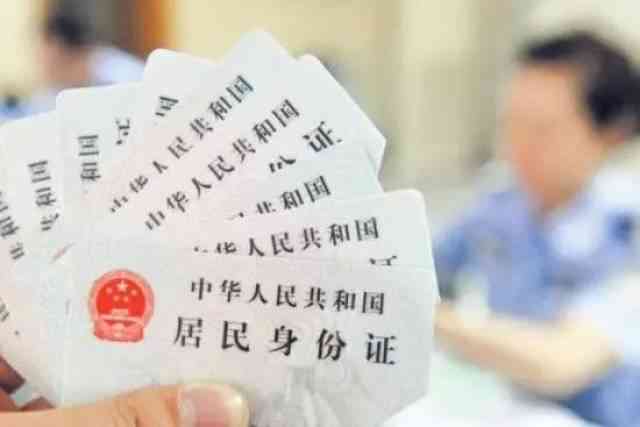 和国
共和国
人民共和国
中华人民共和国
证
共和国
中华人民共和国
证
中华人民共和国
居民身份证